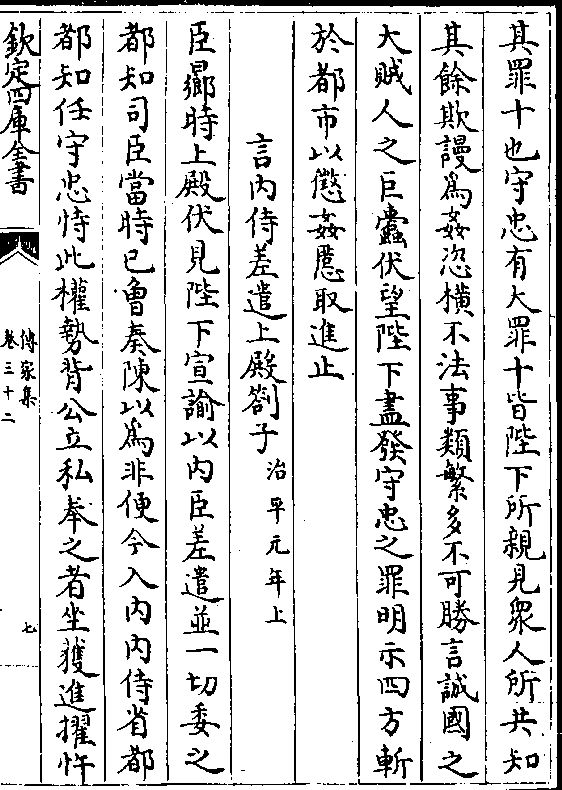 其罪十也守忠有大罪十皆陛下所親見衆人所共知
其餘欺謾爲姦恣橫不法事類繁多不可勝言誠國之
大賊人之巨蠹伏望陛下盡發守忠之罪明示四方斬
於都市以懲姦慝取進止
言内侍差遣上殿劄子治平元年上
臣曏時上殿伏見陛下宣諭以内臣差遣並一切委之
都知司臣當時已曾奏陳以爲非便今入内内侍省都
都知任守忠恃此權勢背公立私奉之者坐獲進擢忤
欽定四庫全書
傳家集
卷三十二
七